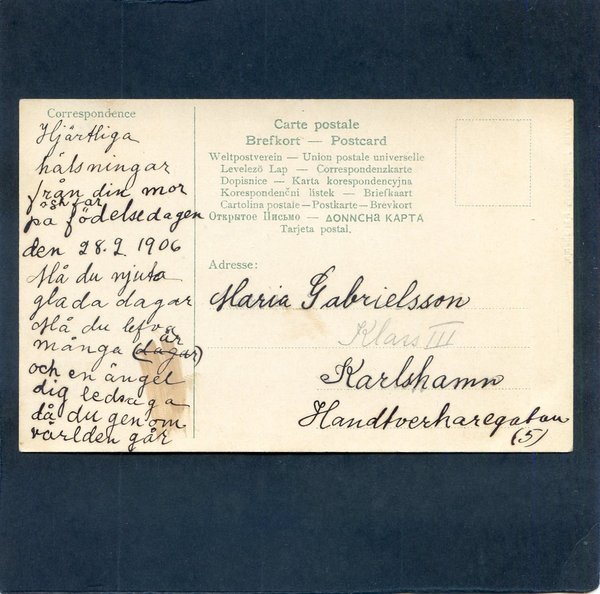 Correspondence
Hjärtliga
hälsningar
från din mor
och far
på födelsedagen
den 28.2 1906
Må du njuta
glada dagar
Må du lefva
år
många (dagar)
och en ängel
dig ledsaga
då du genom
världen går
Carte postale
Brefkort — Postcard
Weltpostverein — Union postale universelle
Levelező Lap — Correspondenzkarte
Dopisnice — Karta korespondencyjna
Korespondenční listek — Briefkaart
Cartolina postale — Postkarte — Brevkort
Открытое Письмо — ΔΟΝΝСНА КАРТА
Tarjeta postal.
Adresse:
Maria Gabrielsson
Klass III
Karlshamn
Handtverkaregatan
(5)